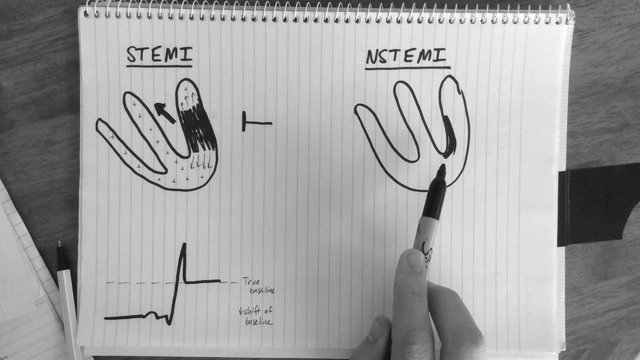 STEMI
NSTEMI
True
baseline
↓shift of
baseline